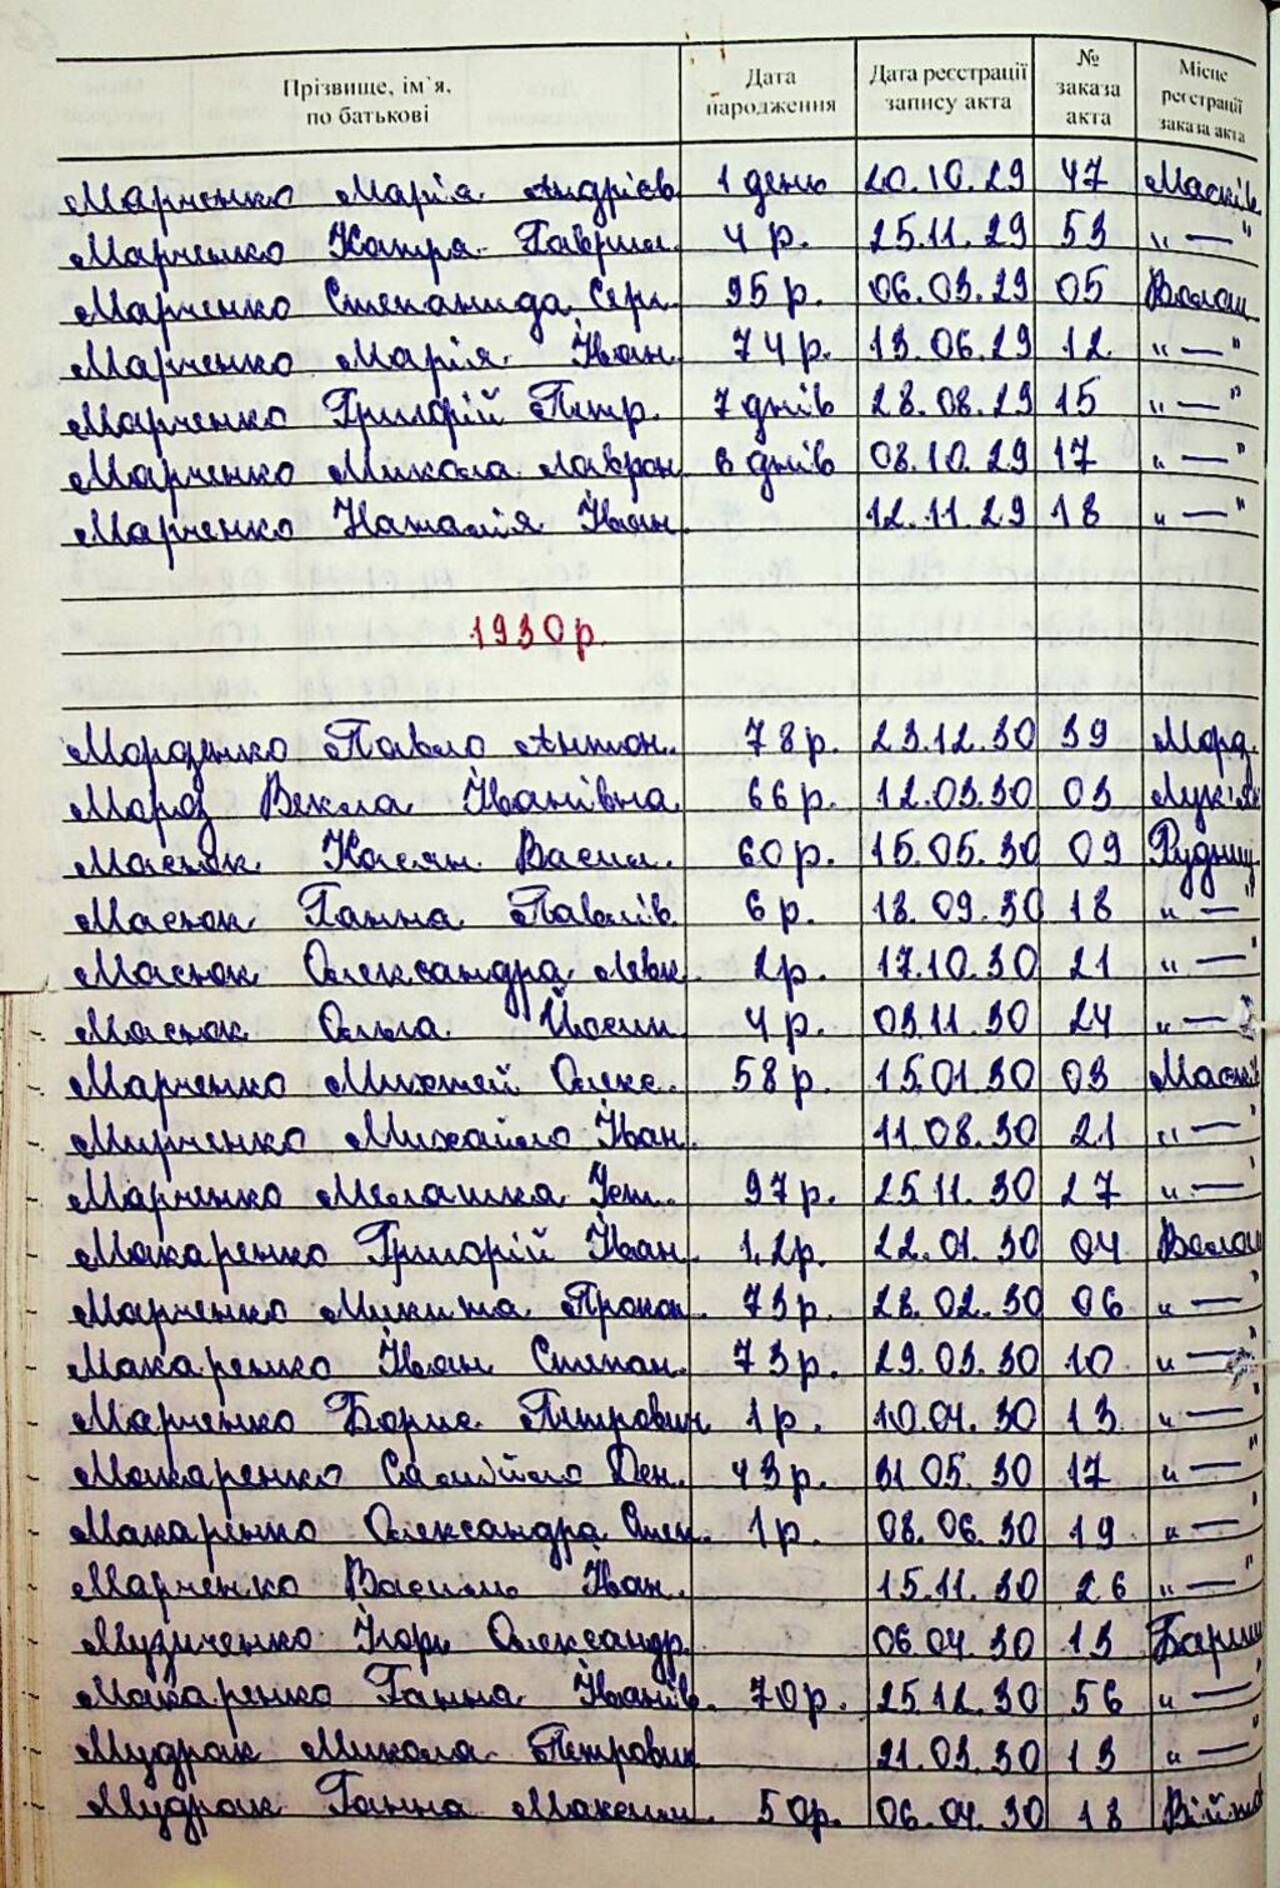 Прізвище, ім`я, по батькові Дата народження Дата реєстрації запису акта № заказа акта Місце реєстрації заказа акта
Марченко Марія Андрієв 1 день 20.10.29 47 Масків
Марченко Катря Гаврил. 4 р. 25.11.29 53 „—"
Марченко Степанида Серг. 95 р. 06.03.29 05 Волош
Марченко Марія Іван. 74 р. 13.06.29 12 „—"
Марченко Григорій Петр. 7 днів 28.08.29 15 „—"
Марченко Микола Лаврон. 8 днів 08.10.29 17 „—"
Марченко Наталія Іван. 12.11.29 18 „—"
1930 р.
Морозенко Павло Антон. 78 р. 23.12.30 39 Морд.
Мороз Векла Іванівна 66 р. 12.03.30 03 Лук'ян
Масюк Касян Васил. 60 р. 15.05.30 09 Рудниц
Масюк Ганна Павлів 6 р. 18.09.30 18 „—"
Масюк Олександра Мвк. 2 р. 17.10.30 21 „—"
Масюк Ольга Йосип 4 р. 03.11.30 24 „—
Марченко Мусій Олекс. 58 р. 15.01.30 03 Масків
Марченко Михайло Іван. 11.08.30 21 „—"
Марченко Мелашка Уст. 97 р. 25.11.30 27 „—"
Макаренко Григорій Іван. 1,2 р. 22.01.30 04 Волош
Марченко Микита Прокоп. 73 р. 28.02.30 06 „—"
Макаренко Іван Степан. 73 р. 29.03.30 10 „—"
Марченко Борис Петрович 1 р. 10.04.30 13 „—"
Макаренко Самійло Ден. 43 р. 31.05.30 17 „—"
Макаренко Олександра Степ. 1 р. 08.06.30 19 „—"
Марченко Василь Іван. 15.11.30 26 „—"
Музиченко Ігор Олександр. 06.04.30 13 Бариш
Макаренко Ганна Іванів. 70 р. 25.12.30 56 „—"
Мудрак Микола Петрович 21.03.30 13 „—"
Мудрак Ганна Максим. 50 р. 06.04.30 18 Війтів